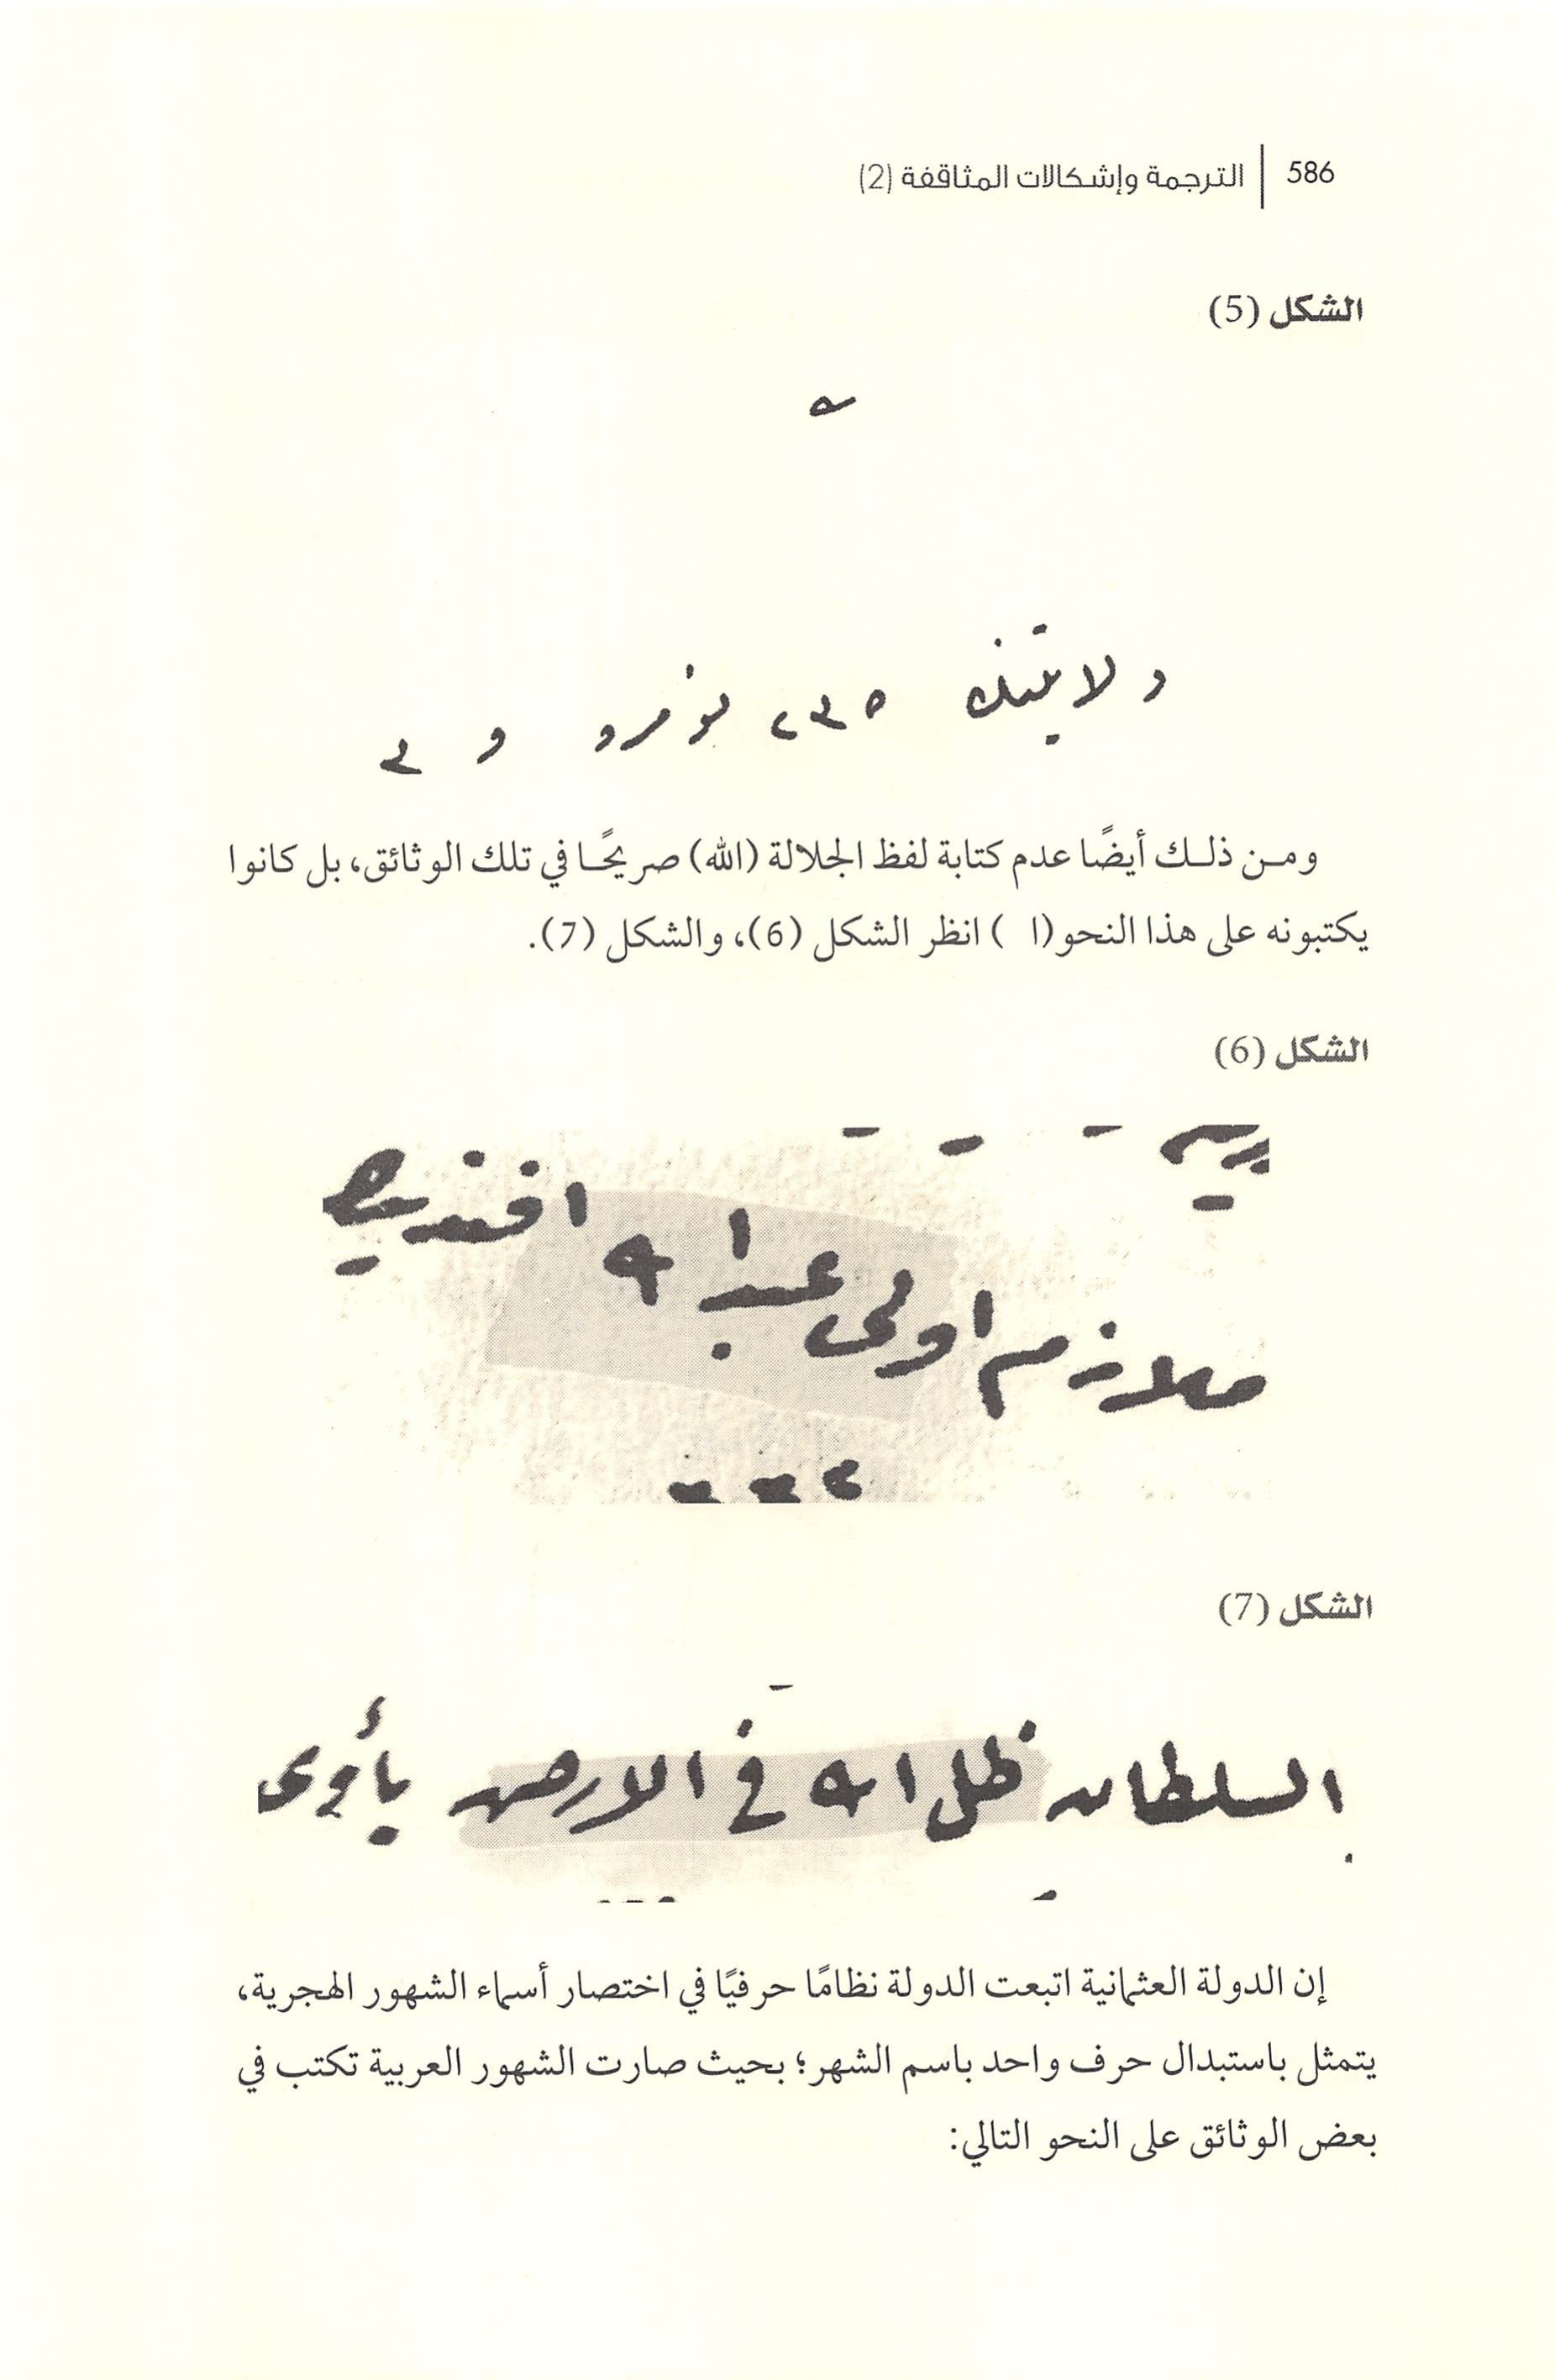 586 | الترجمة وإشكالات المثاقفة (2)
الشكل (5)
ولايتنك ٢٣٥ نومرو و
ومن ذلك أيضًا عدم كتابة لفظ الجلالة (الله) صريحًا في تلك الوثائق، بل كانوا
يكتبونه على هذا النحو (ا ) انظر الشكل (6)، والشكل (7).
الشكل (6)
ملازم اولى عبدا افندينك
الشكل (7)
السلطان ظل ا في الارض يأوى
إن الدولة العثمانية اتبعت الدولة نظامًا حرفيًا في اختصار أسماء الشهور الهجرية،
يتمثل باستبدال حرف واحد باسم الشهر؛ بحيث صارت الشهور العربية تكتب في
بعض الوثائق على النحو التالي: